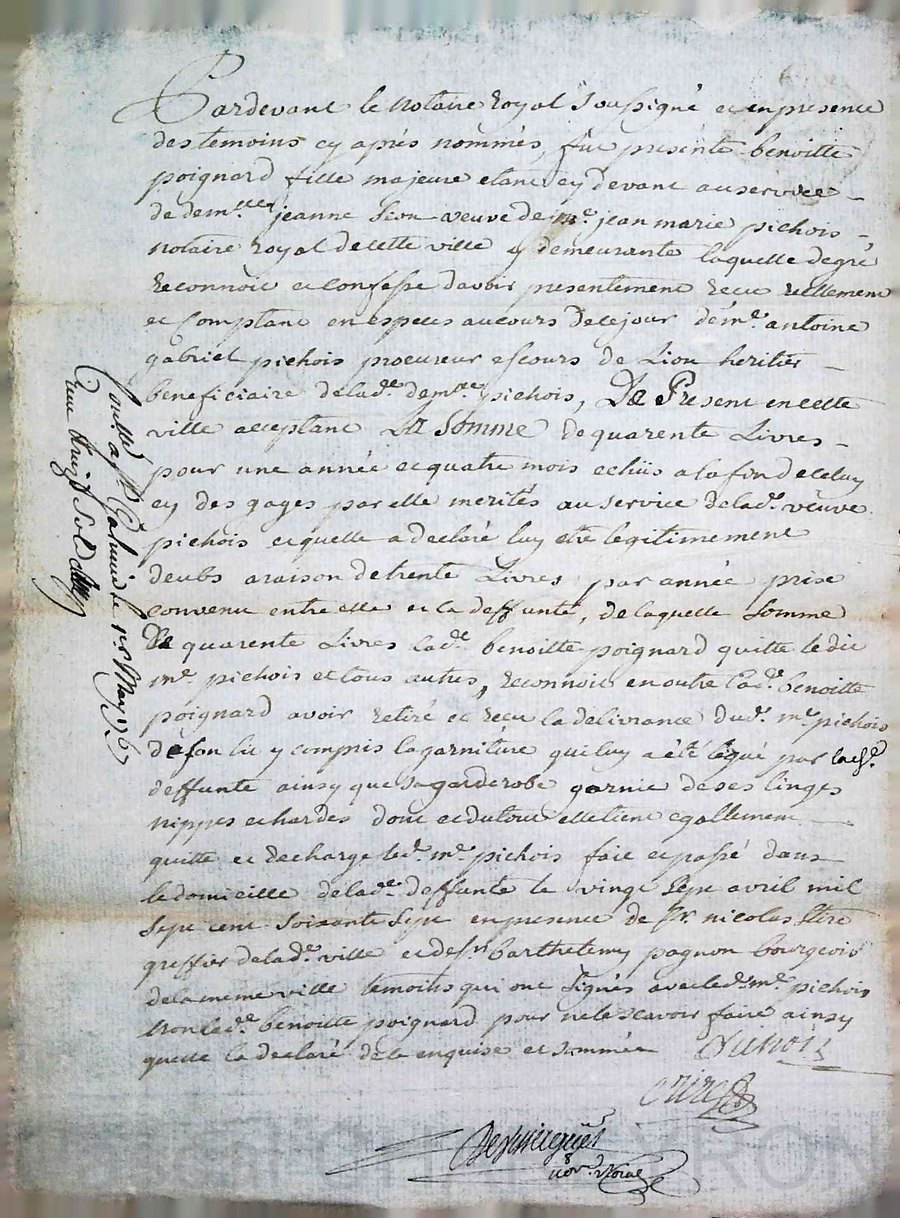 Pardevant le Notaire Royal soussigné et en presence
des temoins cy aprés nommés, fut presente benoitte
poignard fille majeure etant cy devant au service
de dem.lle jeanne Leon veuve de m.e jean marie pichois
notaire Royal de cette ville y demeurante laquelle de gré
Reconnoit et confesse davoir presentement recu reellement
et comptant en especes au cours de ce jour de m.e antoine
gabriel pichois procureur es cours de Lion heritier
beneficiaire de lad.e dem.lle pichois, De Present en cette
ville acceptant La Somme de quarente Livres
pour une année et quatre mois echüs a la fin de celuy
cy des gages par elle merités au service de lad.e veuve
pichois et quelle a declaré luy etre legitimement
deubs a raison de trente Livres par année prise
convenu entre elle et la deffunte, de laquelle somme
De quarente Livres lad.e benoitte poignard quitte le dit
m.e pichois et tous autres, reconnoit en outre lad.e benoitte
poignard avoir retiré et recu la delivrance dud. m.e pichois
de son lit y compris la garniture qui luy a eté légué par lad.e
deffunte ainsy que sa garderobe garnie de ses linges
nippes et hardes dont et du tout elle tient egallement
quitte et decharge led. m.e pichois fait et passé dans
le domicille de lad.e deffunte le vingt sept avril mil
sept cent soixante sept en presence de Sr nicolas
greffier de lad.e ville et de sr barthelemy pagnon bourgeois
de la meme ville temoins qui ont signés avec led. m.e pichois
non lad.e benoitte poignard pour ne le scavoir faire ainsy
quelle la declaré de ce enquise et sommée Pichois
not.re Royal
Conllé a St Galmier le 1er May 1767